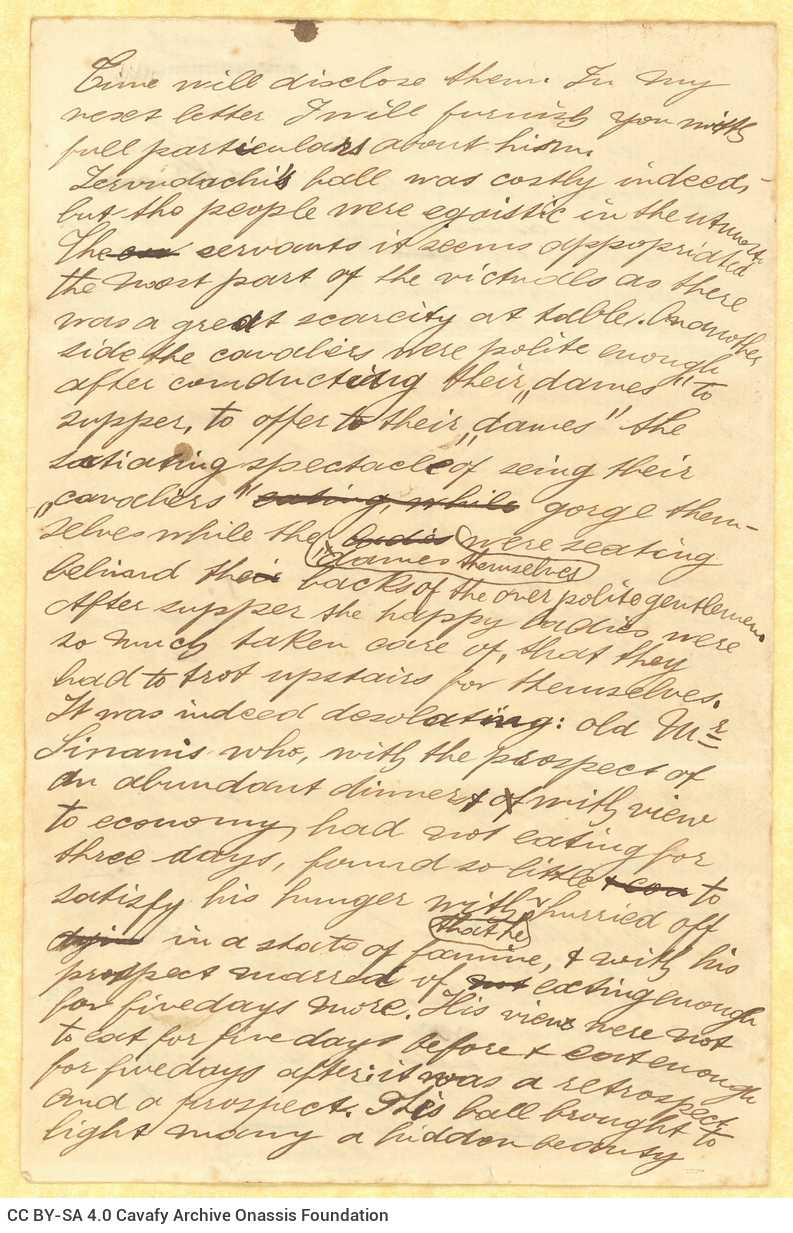 Time will disclose them. In my
next letter I will furnish you with
full particulars about him.
Zervudachi's ball was costly indeed,
but the people were egoistic in the utmost.
The servants it seems appropriated
the most part of the victuals as there
was a great scarcity at table. On another
side the cavaliers were polite enough
after conducting their „dames" to
supper, to offer to their „dames" the
satiating spectacle of seing their
„cavaliers" eating, while gorge them-
selves while the ladies were seating
"dames themselves
behind their backs of the over polite gentlemen.
After supper the happy ladies were
so much taken care of, that they
had to trot upstairs for themselves.
It was indeed desolating: old Mr
Sinanis who, with the prospect of
an abundant dinner & of with view
to economy, had not eating for
three days, found so little to
satisfy his hunger with hurried off
that he
in a state of famine, & with his
prospect marred of not eating enough
for five days more. His views were not
to eat for five days before & eat enough
for five days after: it was a retrospect
and a prospect. This ball brought to
light many a hidden beauty
CC BY-SA 4.0 Cavafy Archive Onassis Foundation